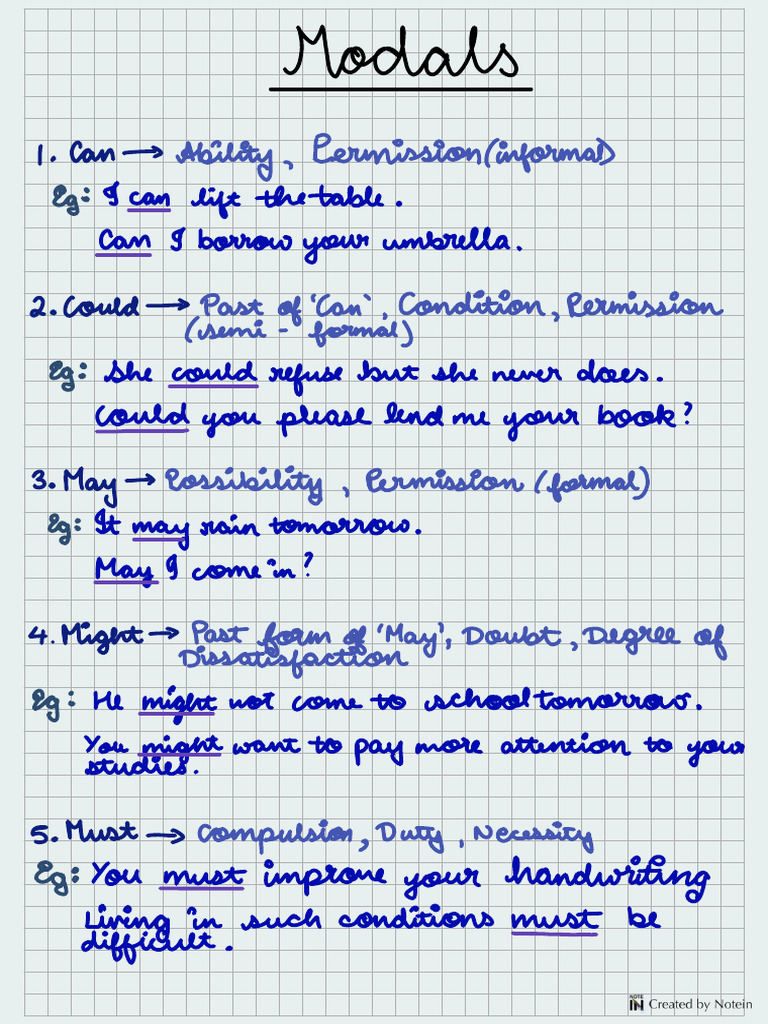 Modals
1. Can → Ability, Permission (informal)
Eg: I can lift the table.
Can I borrow your umbrella.
2. Could → Past of 'Can', Condition, Permission
(semi - formal)
Eg: She could refuse but she never does.
Could you please lend me your book?
3. May → Possibility, Permission (formal)
Eg: It may rain tomorrow.
May I come in?
4. Might → Past form of 'May', Doubt, Degree of
Dissatisfaction
Eg: He might not come to school tomorrow.
You might want to pay more attention to your
studies.
5. Must → Compulsion, Duty, Necessity
Eg: You must improve your handwriting
Living in such conditions must be
difficult.
NOTE IN Created by Notein